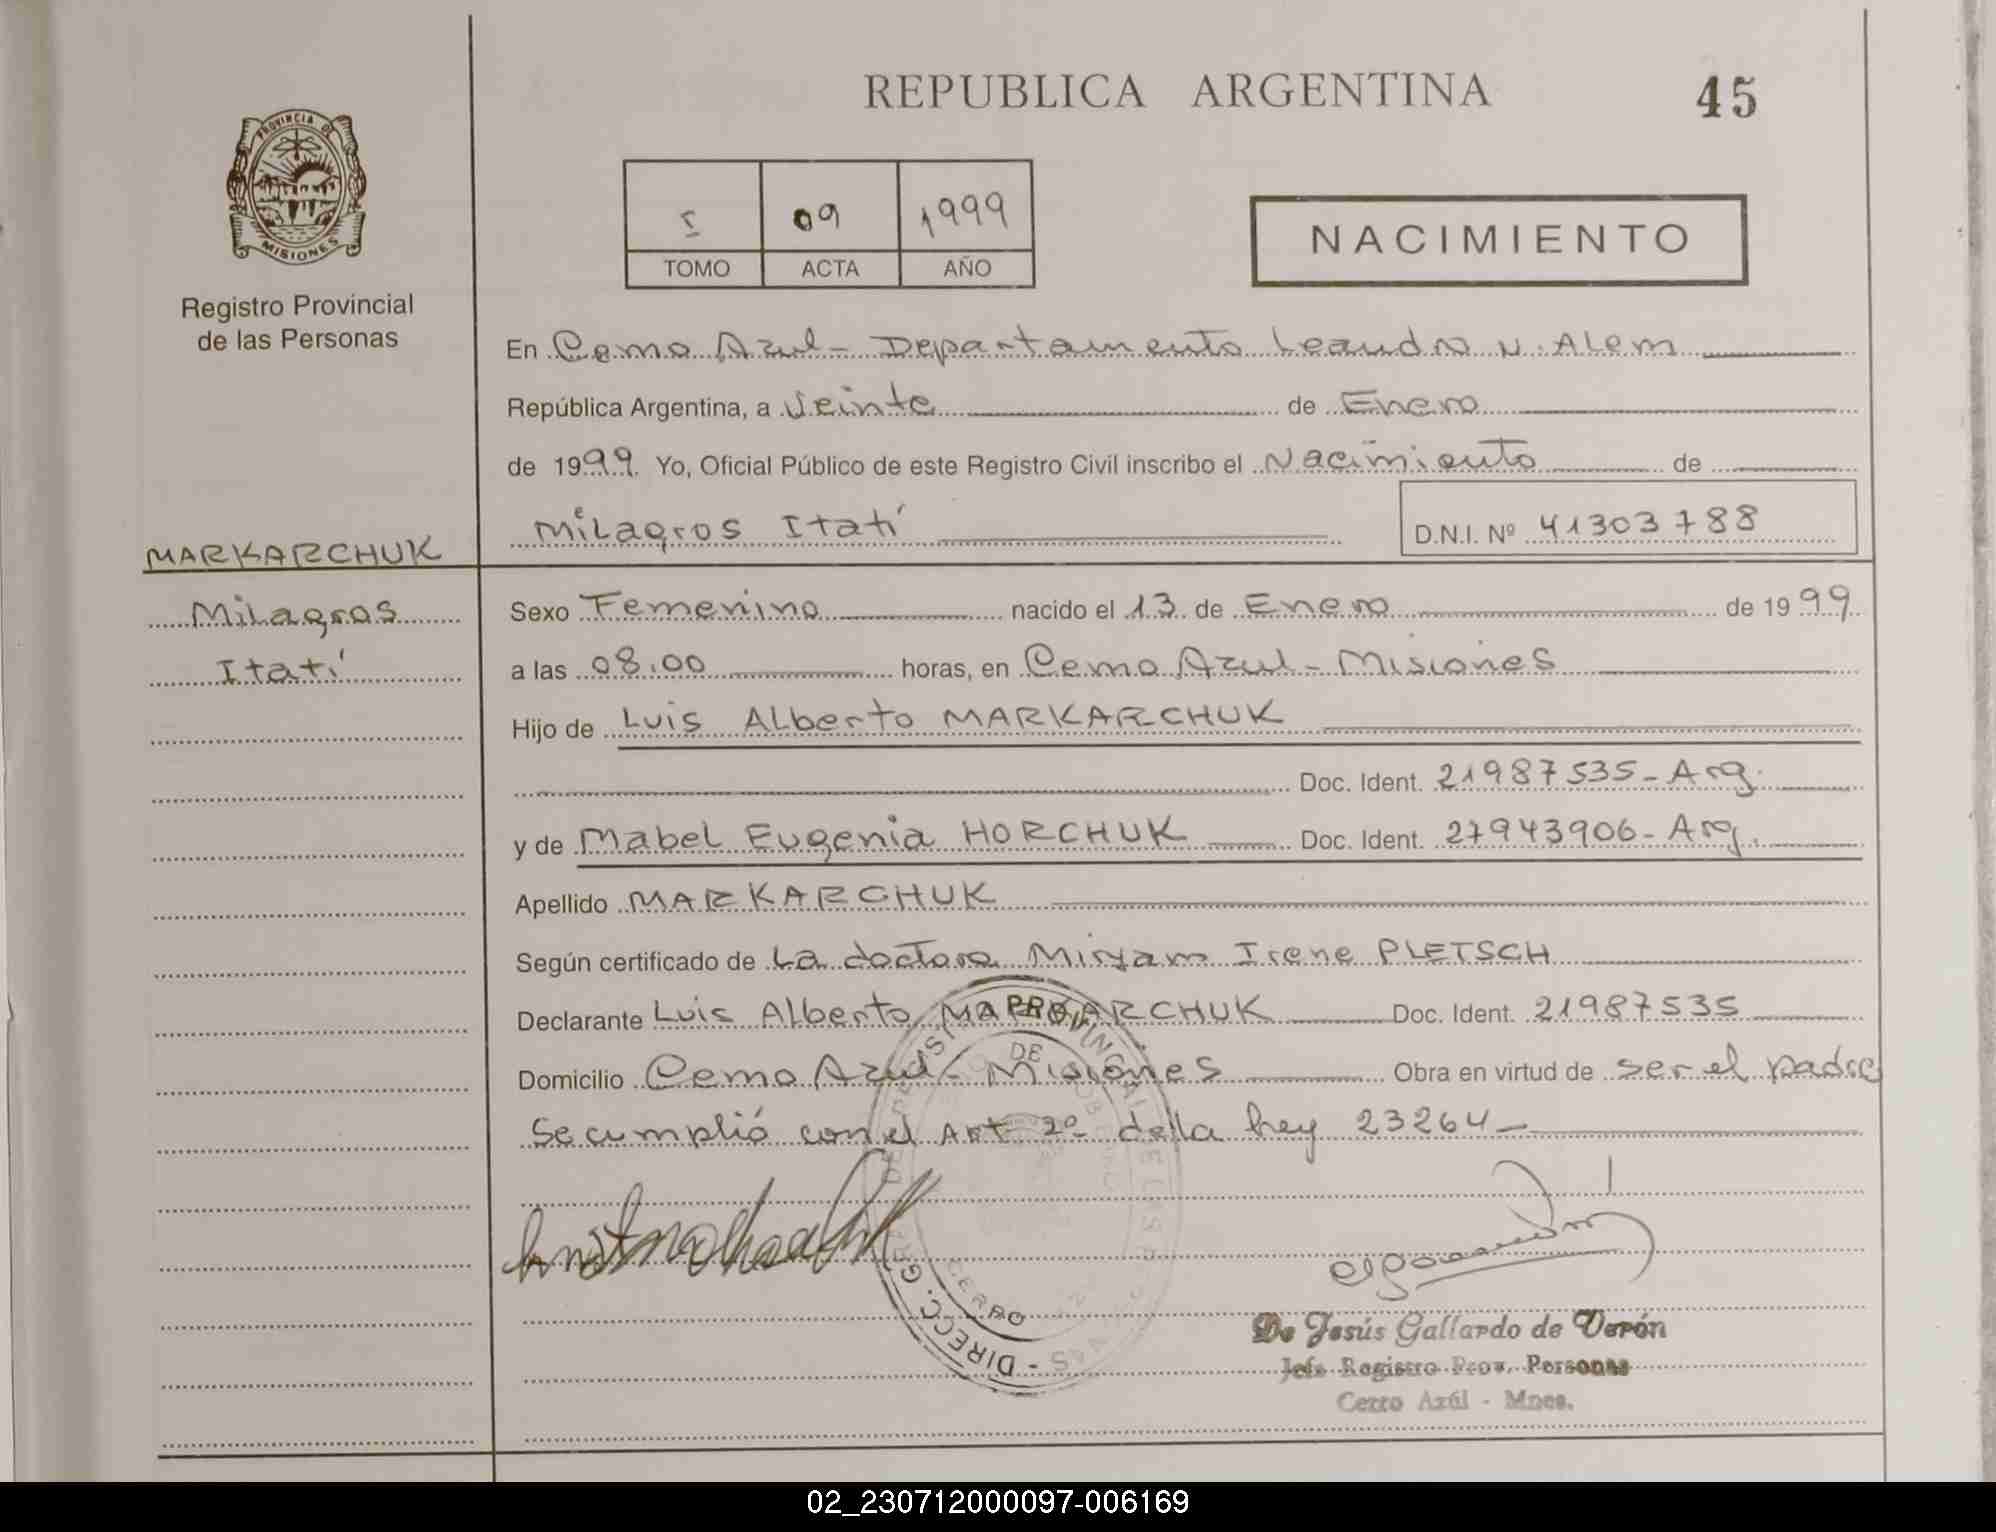 REPUBLICA ARGENTINA
45
PROVINCIA DE
MISIONES
Registro Provincial
de las Personas
I 09 1999
TOMO ACTA AÑO
NACIMIENTO
En Cerro Azul - Departamento Leandro N. Alem
República Argentina, a Veinte de Enero
de 1999. Yo, Oficial Público de este Registro Civil inscribo el Nacimiento de
Milagros Itatí
D.N.I. Nº 41303788
MARKARCHUK
Milagros
Itatí
Sexo Femenino nacido el 13 de Enero de 1999
a las 08.00 horas, en Cerro Azul - Misiones
Hijo de Luis Alberto MARKARCHUK
Doc. Ident. 21987535 - Arg.
y de Mabel Eugenia HORCHUK Doc. Ident. 27943906 - Arg.
Apellido MARKARCHUK
Según certificado de La doctora Miryam Irene PLETSCH
Declarante Luis Alberto MARKARCHUK Doc. Ident. 21987535
Domicilio Cerro Azul - Misiones Obra en virtud de ser el padre
Se cumplió con el Art 2º de la Ley 23264 -
CERRO
De Jesús Gallardo de Verón
Jefe Registro Prov. Personas
Cerro Azúl - Mnes.
02_230712000097-006169